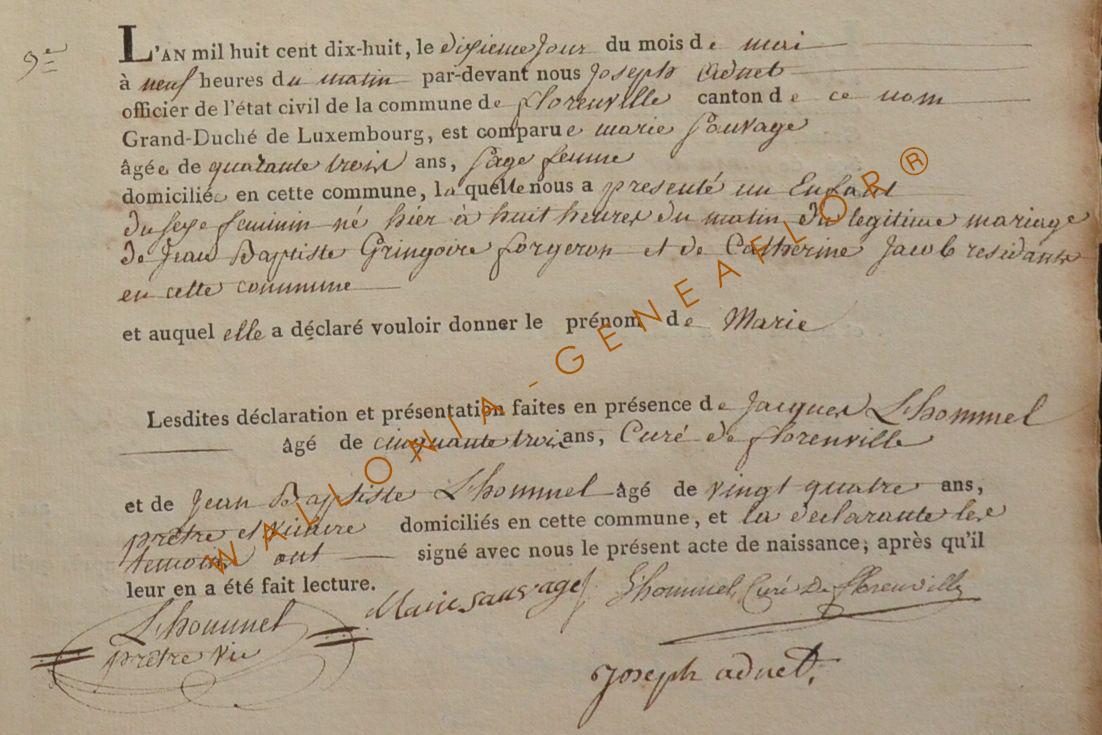 9e
L'AN mil huit cent dix-huit, le dixieme jour du mois de mai
à neuf heures du matin par-devant nous joseph adnet
officier de l'état civil de la commune de florenville canton de ce nom
Grand-Duché de Luxembourg, est comparue marie Sauvage
âgée de quarante trois ans, sage femme
domiciliée en cette commune, laquelle nous a presenté un Enfant
du sexe feminin né hier à huit heures du matin du legitime mariage
de Jean Baptiste Gringoire forgeron et de Catherine Jacob residants
en cette commune
et auquel elle a déclaré vouloir donner le prénom de Marie
Lesdites déclaration et présentation faites en présence de Jacques Lhommel
âgé de cinquante trois ans, Curé de florenville
et de Jean Baptiste Lhommel âgé de vingt quatre ans,
prêtre et vicaire domiciliés en cette commune, et la declarante les
temoins ont signé avec nous le présent acte de naissance; après qu'il
leur en a été fait lecture.
Lhommel
prêtre vic
Marie sauvage
Lhommel, Curé De florenville
joseph adnet.
WALLONIA-GENEAFLOR®